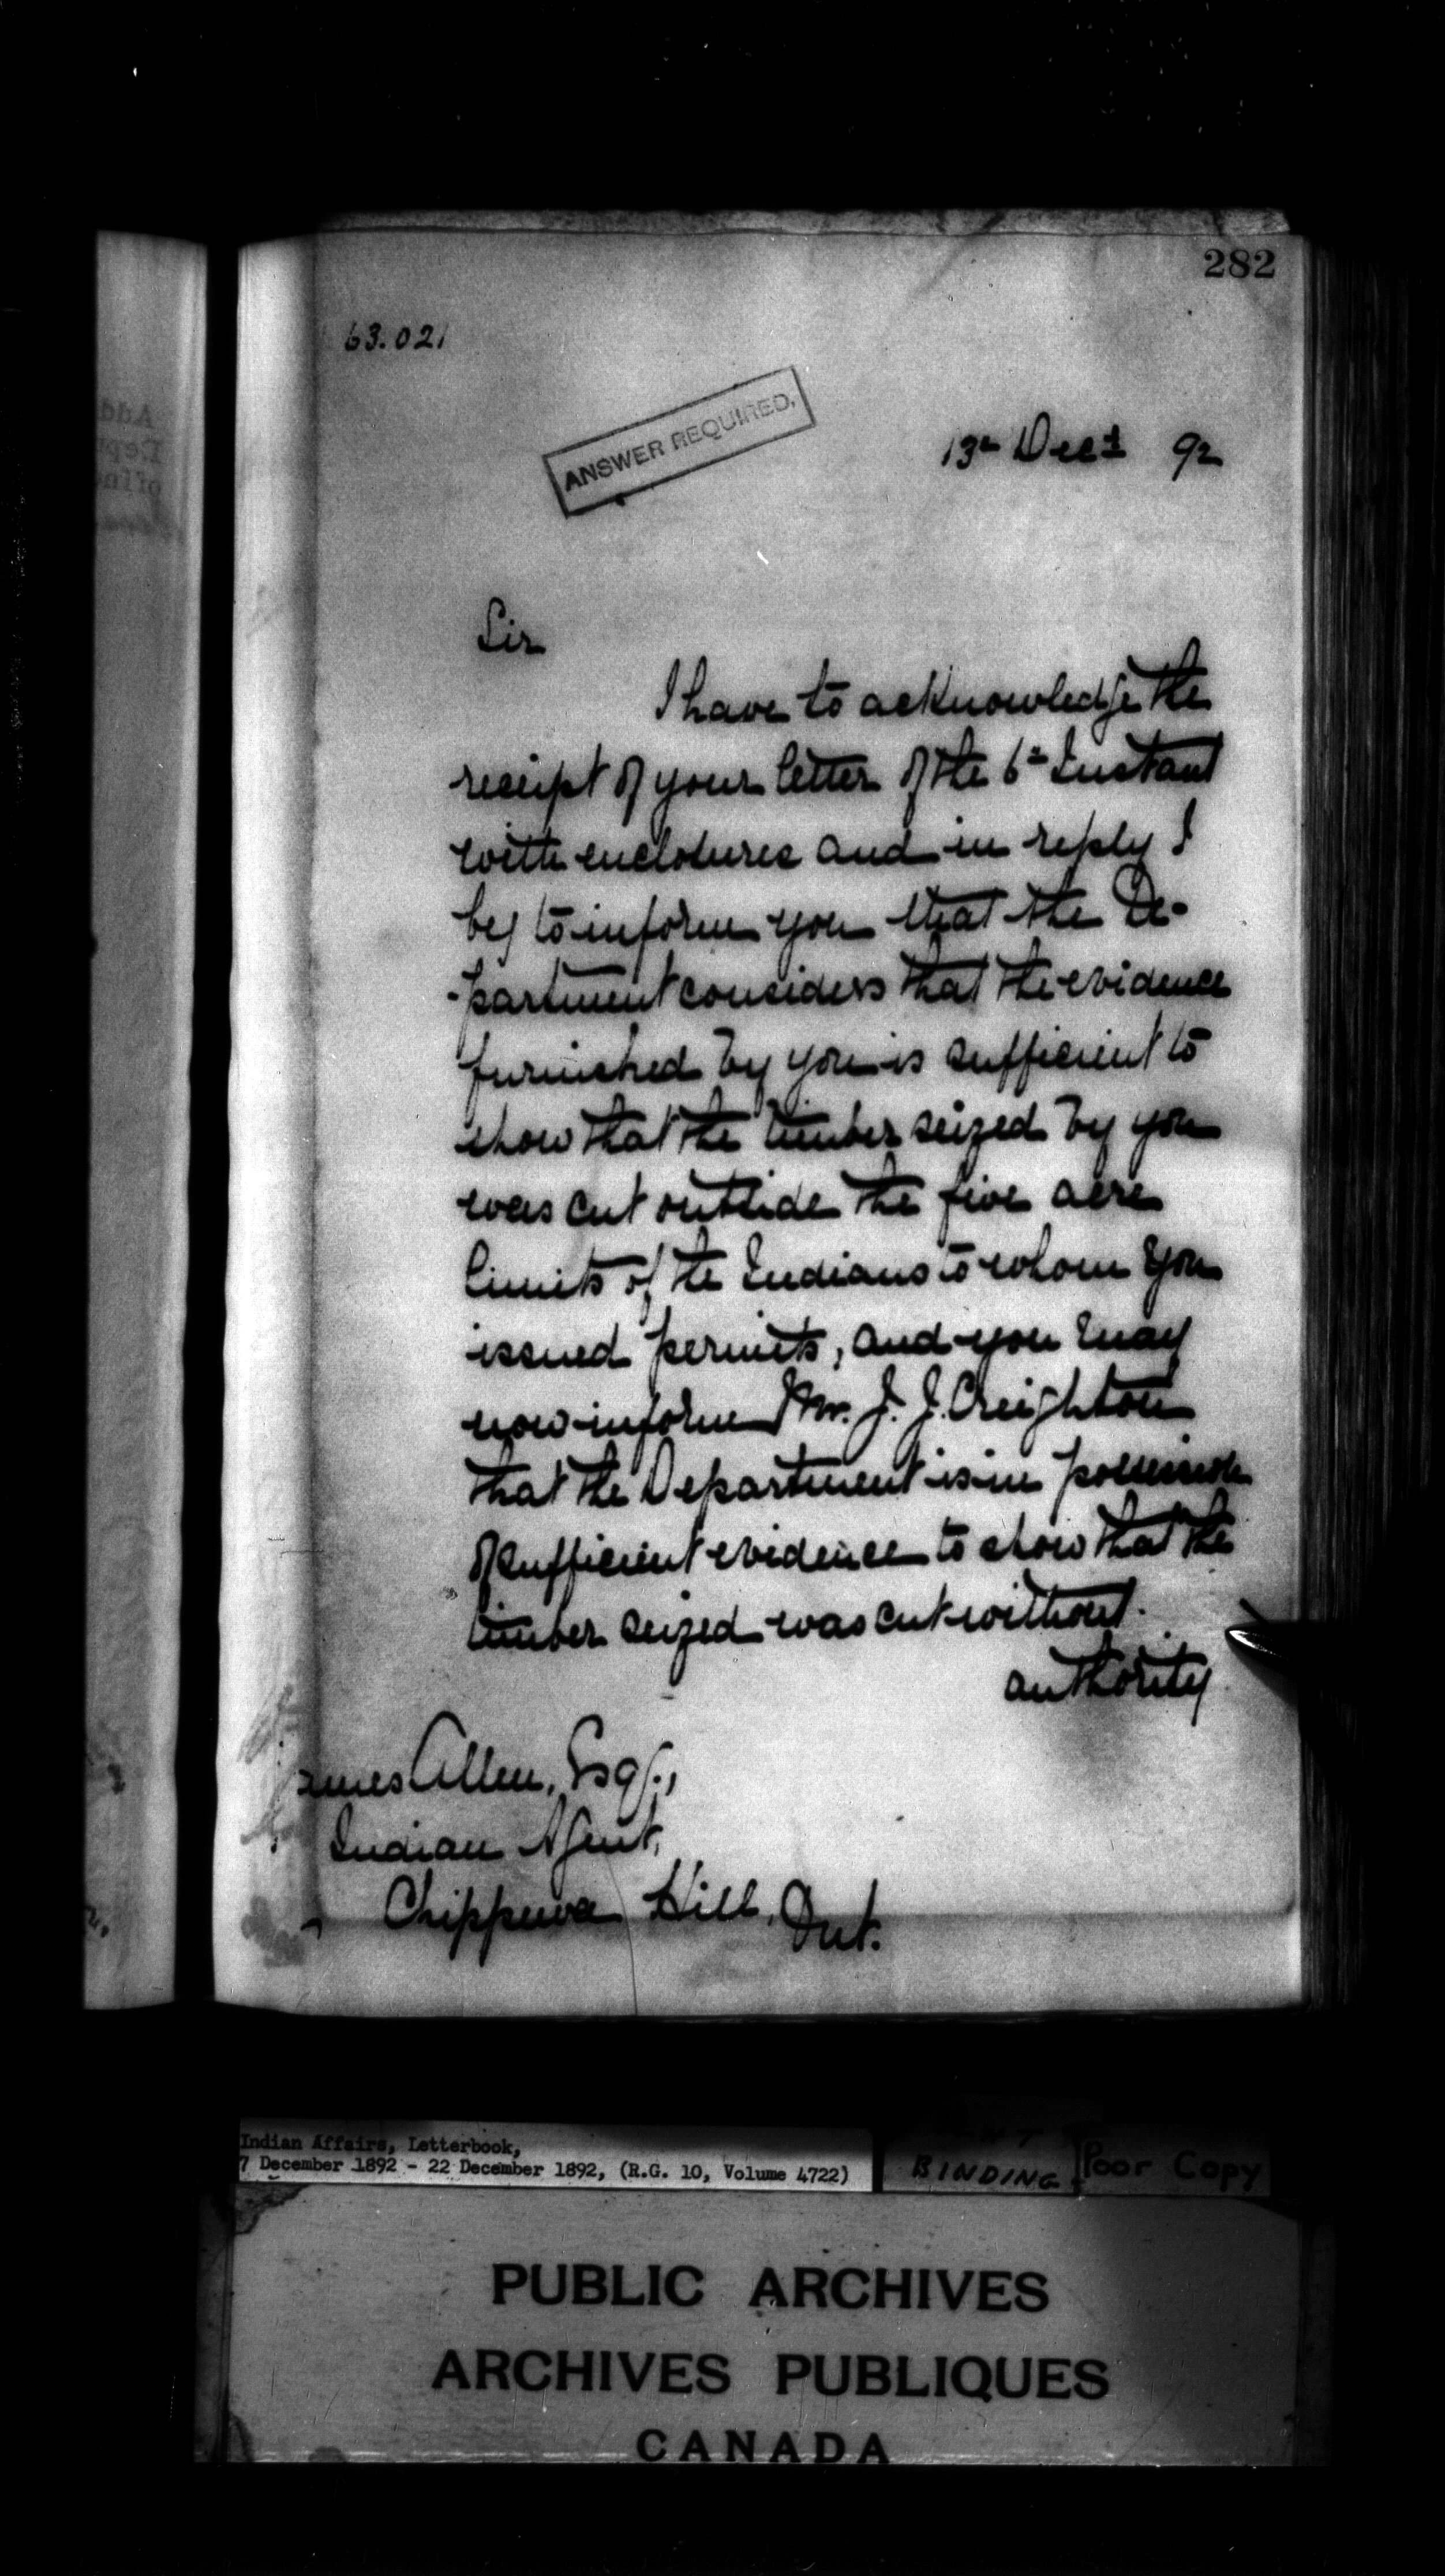 282
63.021
ANSWER REQUIRED.
13th Decr 92
Sir
I have to acknowledge the
receipt of your letter of the 6th Instant
with enclosures and in reply I
beg to inform you that the De-
-partment considers that the evidence
furnished by you is sufficient to
show that the timber seized by you
was cut outside the five acre
limits of the Indians to whom you
issued permits, and you may
now inform Mr. J. J. Creighton
that the Department is in possession
of sufficient evidence to show that the
timber seized was cut without
authority
James Allen, Esq.,
Indian Agent,
Chippewa Hill, Ont.
Indian Affairs, Letterbook,
7 December 1892 - 22 December 1892, (R.G. 10, Volume 4722)
BINDING
Poor Copy
PUBLIC ARCHIVES
ARCHIVES PUBLIQUES
CANADA